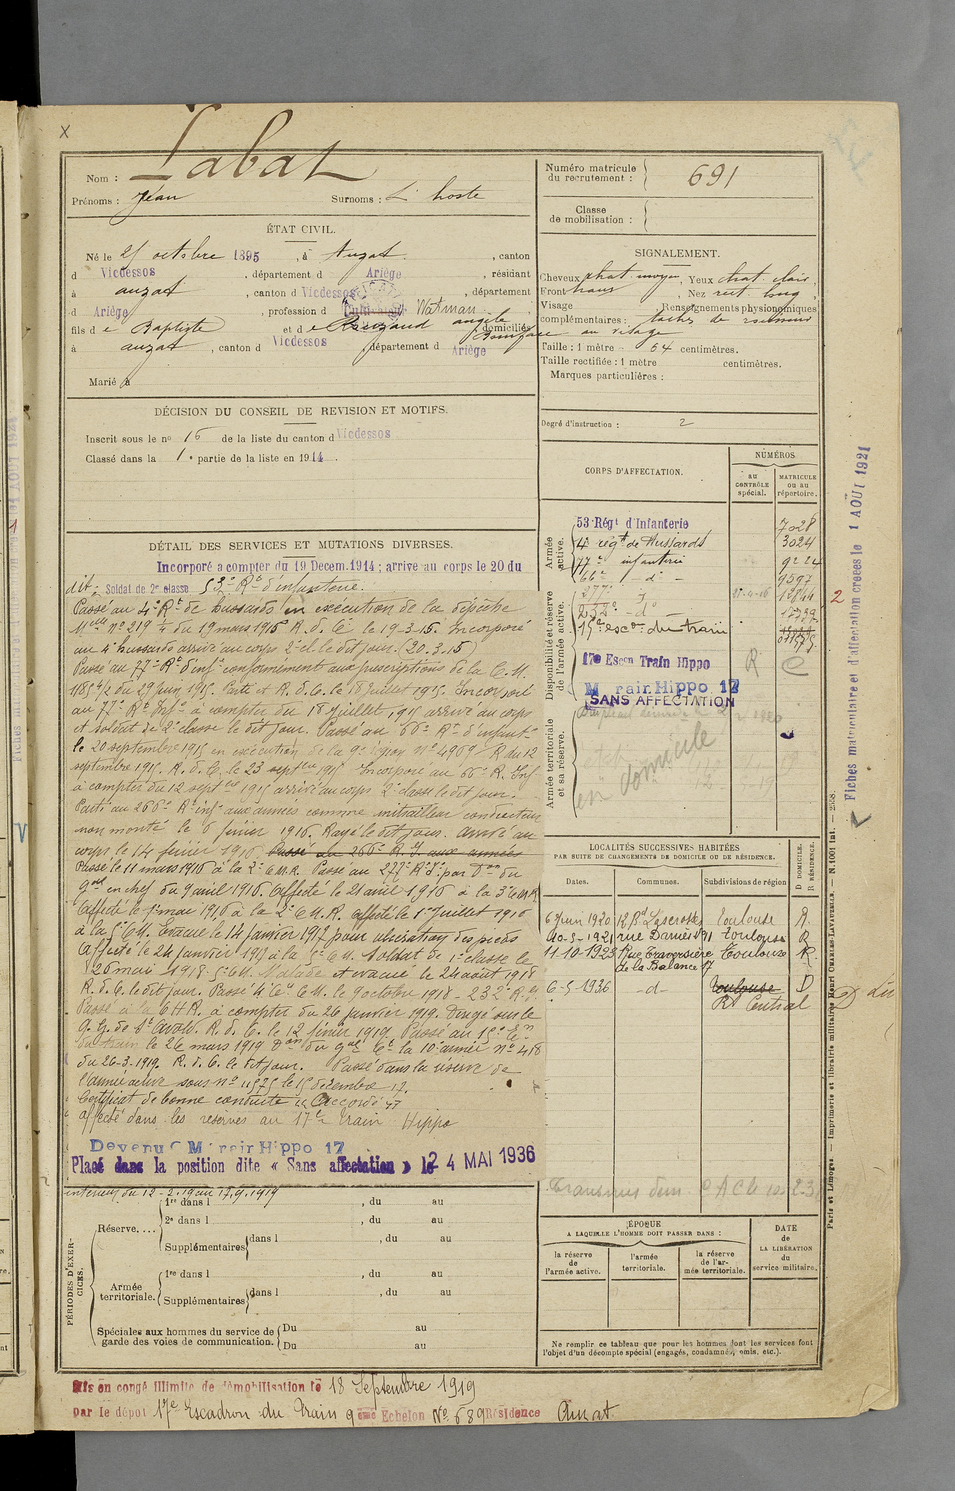 Nom : Labat
Prénoms : Jean Surnoms : L'hoste
Numéro matricule du recrutement : 691
Classe de mobilisation :
ÉTAT CIVIL.
Né le 21 octobre 1895, à Auzat, canton
d Vicdessos, département d Ariège, résidant
à auzat, canton d Vicdessos, département
d Ariège, profession d Cultivateur Watman
fils de Baptiste et de angèle domiciliés
à auzat, canton d Vicdessos département d Ariège
Marié à
SIGNALEMENT.
Cheveux chat. moyen, Yeux chat. clair,
Front , Nez rect. long,
Visage Renseignements physionomiques
complémentaires : taches de rousseur
au visage
Taille : 1 mètre 54 centimètres.
Taille rectifiée : 1 mètre centimètres.
Marques particulières :
Degré d'instruction : 2
DÉCISION DU CONSEIL DE REVISION ET MOTIFS.
Inscrit sous le n° 16 de la liste du canton d Vicdessos
Classé dans la 1e partie de la liste en 1914
DÉTAIL DES SERVICES ET MUTATIONS DIVERSES.
Incorporé a compter du 19 Decem. 1914 ; arrive au corps le 20 du
dit. Soldat de 2e classe 53e Rt d'infanterie.
Passé au 4e Rt de hussards en exécution de la dépêche
Mlle n° 219 1/4 du 19 mars 1915 R. d. C. le 19-3-15. Incorporé
au 4e hussards arrivé au corps 2e cl le dit jour. (20.3.15)
Passé au 77e Rt d'inf conformément aux prescriptions de la C. M.
du 29 juin 1915. Parti et R. d. C. le 18 juillet 1915. Incorporé
au 77e Rt Infie à compter du 18 juillet 1915 arrivé au corps
et soldat de 2e classe le dit jour. Passé au 66e Rt d'infant
le 20 septembre 1915 en exécution de la 9e région N° 4909/R du 12
septembre 1915. R. d. C. le 23 septbre 1915 Incorporé au 66e R. Inf
à compter du 12 septbre 1915 arrivé au corps 2e classe le dit jour.
Parti au 266e Rt inf aux armées comme mitrailleur conducteur
non monté le 6 février 1916. Rayé le dit jour. arrivé au
corps le 14 février 1916. Passé au 266e R. I. aux armées
Passé le 11 mars 1916 à la 2e C.M.R. Passé au 277e Rt d'I. par Don du
Gal en chef du 9 avril 1916. Affecté le 21 avril 1916 à la 3e C.M.R
Affecté le 1er mai 1916 à la 2e C.M.R. affecté le 1er Juillet 1916
à la 5e C.M. Evacué le 14 janvier 1917 pour ulcération des pieds
Affecté le 24 janvier 1917 à la 5e C.M. Soldat de 1e classe le
26 mai 1918. 5e C.M. Malade et évacué le 24 août 1918
R. d. C. le dit jour. Passé 4e Cie C.M. le 9 octobre 1918 - 232e R.I.
Passé à la C.H.R. à compter du 26 janvier 1919. Dirigé sur le
G.Q. de St Avold. R. d. C. le 12 février 1919. Passé au 15e Em
du train le 26 mars 1919 Don du Gal Ct la 10e armée n° 418
du 26-3-1919. R. d. C. le dit jour. Passé dans la réserve de
l'armée active sous n° 11575 le 15 décembre 17.
Certificat de bonne conduite "Accordé"
affecté dans les réserves au 17e Train Hippo
Devenu C M Train Hippo 17
Placé dans la position dite « Sans affectation » le 24 MAI 1936
intérieur du 12-2-19 au 17.9.1919
CORPS D'AFFECTATION.
NUMÉROS
au CONTRÔLE spécial.
MATRICULE ou au répertoire.
Armée active.
53e Régt d'Infanterie 7028
4e régt de Hussards 3024
77e infanterie
66e -d°- 9597
Disponibilité et réserve de l'armée active.
277e -d°-
232e -d°
15e escon du train
17e Escon Train Hippo R
M Train Hippo 17
SANS AFFECTATION
Armée territoriale et sa réserve.
en domicile
Fiches matriculaire et d'affectation créées le 1 AOÛT 1921
2
LOCALITÉS SUCCESSIVES HABITÉES
PAR SUITE DE CHANGEMENTS DE DOMICILE OU DE RÉSIDENCE.
Dates. Communes. Subdivisions de région D DOMICILE. R RÉSIDENCE.
6 juin 1920 12 Bd Lascrosses Toulouse R.
10-5-1921 rue Daniès 91 Toulouse R
11-10-1923 17 rue Traversière de la Balance 17 Toulouse R.
6-5-1936 -d- Toulouse Rt Central D
PÉRIODES D'EXERCICES.
Réserve....
1re dans l , du au
2e dans l , du au
Supplémentaires dans l , du au
Armée territoriale.
1re dans l , du au
Supplémentaires dans l , du au
Spéciales aux hommes du service de garde des voies de communication.
Du au
Du au
ÉPOQUE
A LAQUELLE L'HOMME DOIT PASSER DANS :
la réserve de l'armée active.
l'armée territoriale.
la réserve de l'armée territoriale.
DATE de LA LIBÉRATION du service militaire.
Ne remplir ce tableau que pour les hommes dont les services font
l'objet d'un décompte spécial (engagés, condamnés, omis, etc.).
Paris et Limoges. — Imprimerie et librairie militaires Henri CHARLES-LAVAUZELLE. — N. 1001 int. — 2558.
Mis en congé illimité de démobilisation le 18 Septembre 1919
par le dépôt 17e Escadron du Train 9ème Echelon N° 689 Résidence Auzat